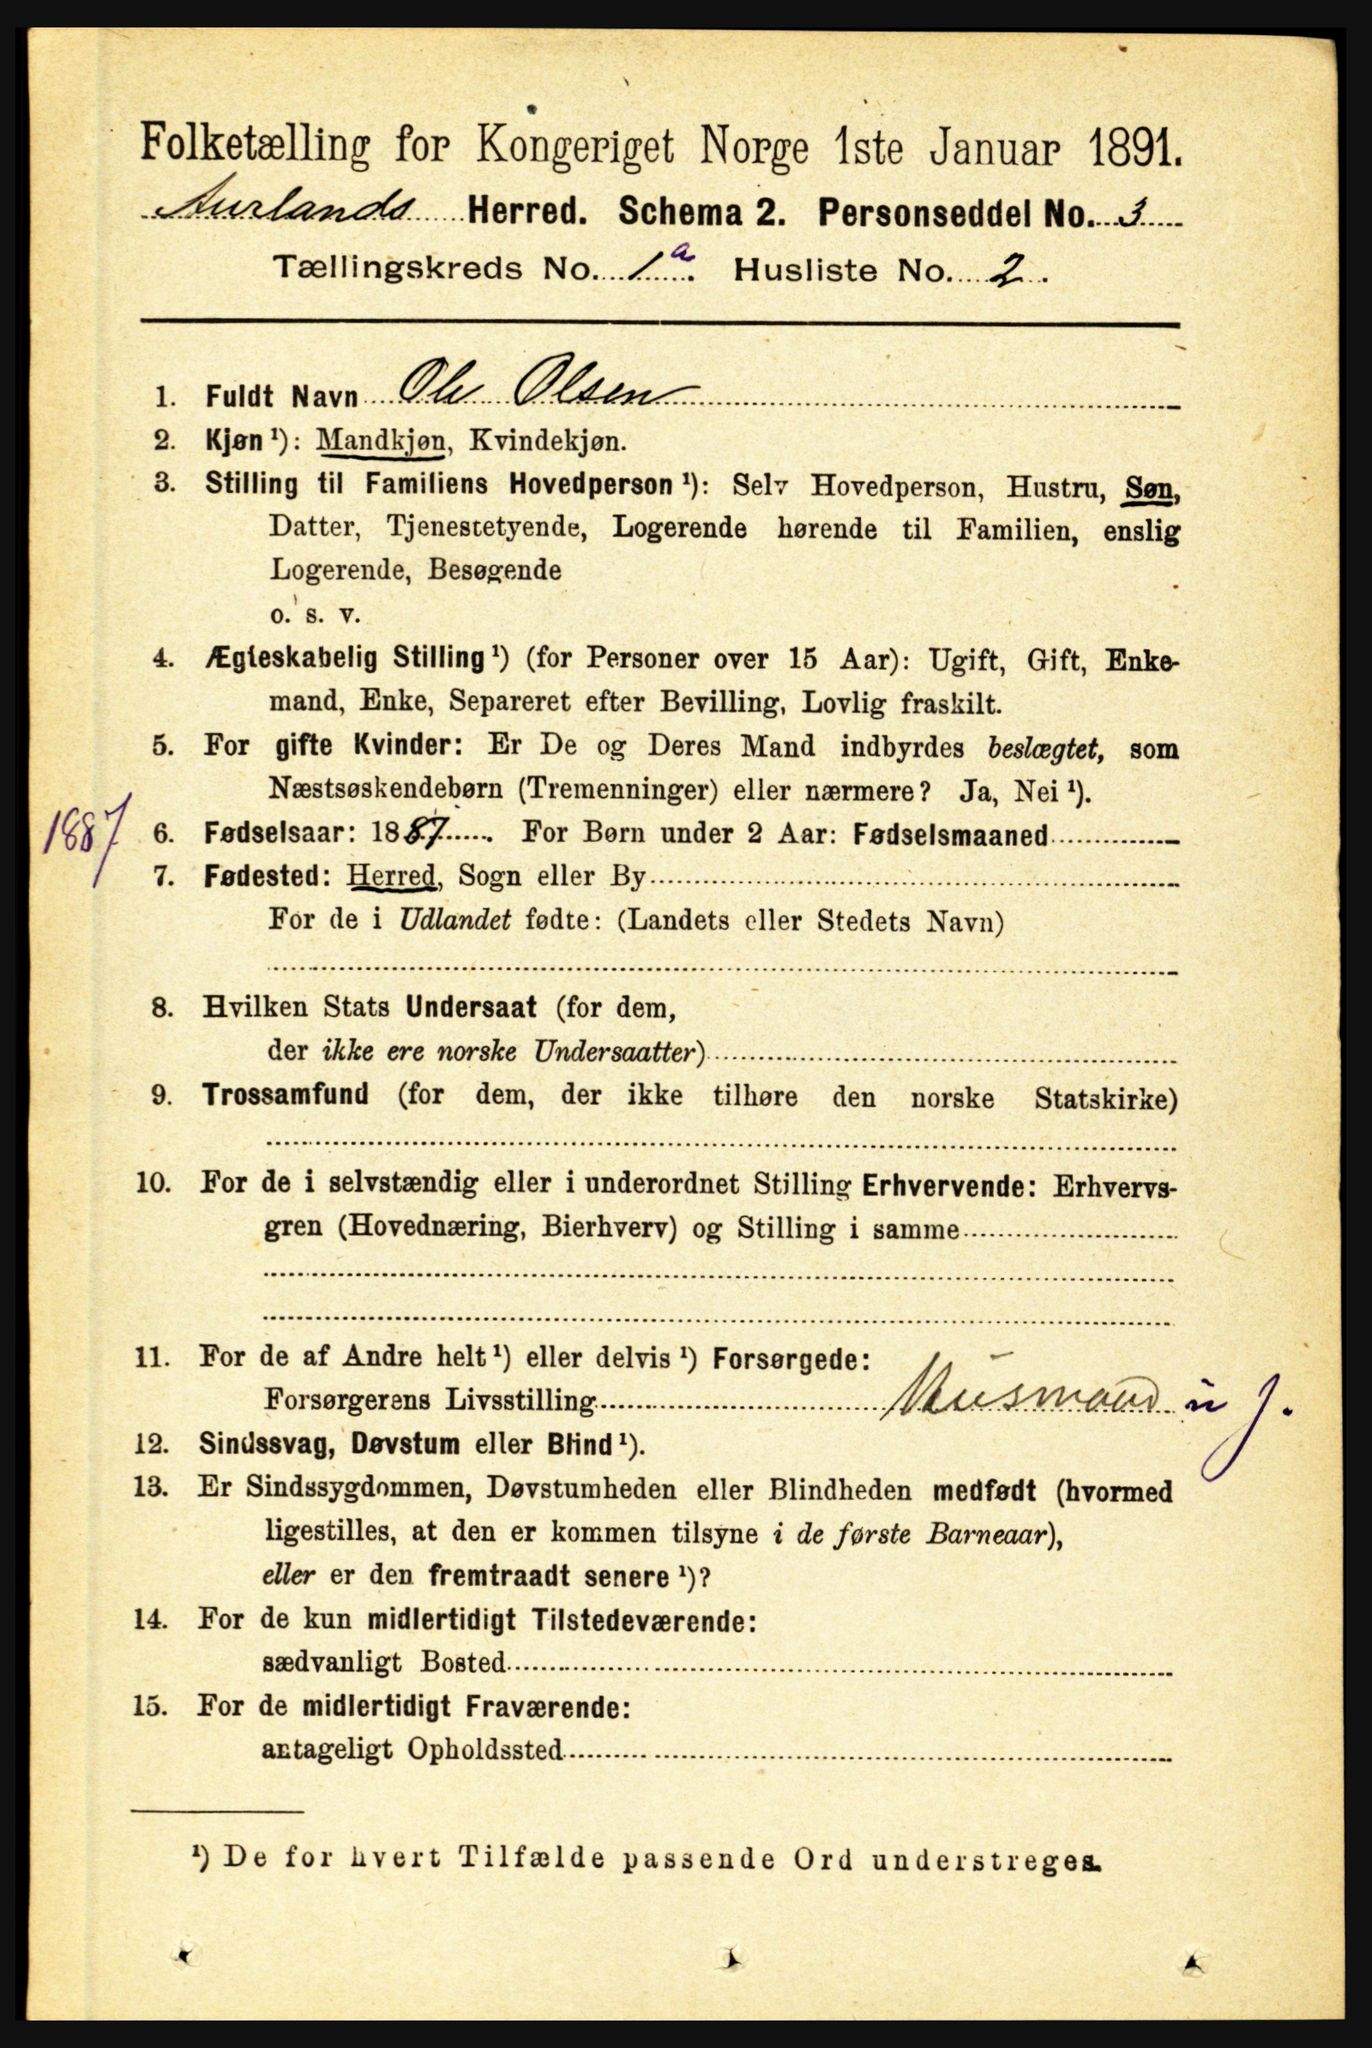 Folketælling for Kongeriget Norge 1ste Januar 1891.
Aurlands Herred. Schema 2. Personseddel No. 3
Tællingskreds No. 1a. Husliste No. 2.
1. Fuldt Navn Ole Olsen
2. Kjøn¹): Mandkjøn, Kvindekjøn.
3. Stilling til Familiens Hovedperson¹): Selv Hovedperson, Hustru, Søn,
Datter, Tjenestetyende, Logerende hørende til Familien, enslig
Logerende, Besøgende
o. s. v.
4. Ægteskabelig Stilling¹) (for Personer over 15 Aar): Ugift, Gift, Enke-
mand, Enke, Separeret efter Bevilling, Lovlig fraskilt.
5. For gifte Kvinder: Er De og Deres Mand indbyrdes beslægtet, som
Næstsøskendebørn (Tremenninger) eller nærmere? Ja, Nei¹).
1887
6. Fødselsaar: 1887. For Børn under 2 Aar: Fødselsmaaned
7. Fødested: Herred, Sogn eller By
For de i Udlandet fødte: (Landets eller Stedets Navn)
8. Hvilken Stats Undersaat (for dem,
der ikke ere norske Undersaatter)
9. Trossamfund (for dem, der ikke tilhøre den norske Statskirke)
10. For de i selvstændig eller i underordnet Stilling Erhvervende: Erhvervs-
gren (Hovednæring, Bierhverv) og Stilling i samme
11. For de af Andre helt¹) eller delvis¹) Forsørgede:
Forsørgerens Livsstilling Husmand u J.
12. Sindssvag, Døvstum eller Blind¹).
13. Er Sindssygdommen, Døvstumheden eller Blindheden medfødt (hvormed
ligestilles, at den er kommen tilsyne i de første Barneaar),
eller er den fremtraadt senere¹)?
14. For de kun midlertidigt Tilstedeværende:
sædvanligt Bosted
15. For de midlertidigt Fraværende:
antageligt Opholdssted
¹) De for hvert Tilfælde passende Ord understreges.